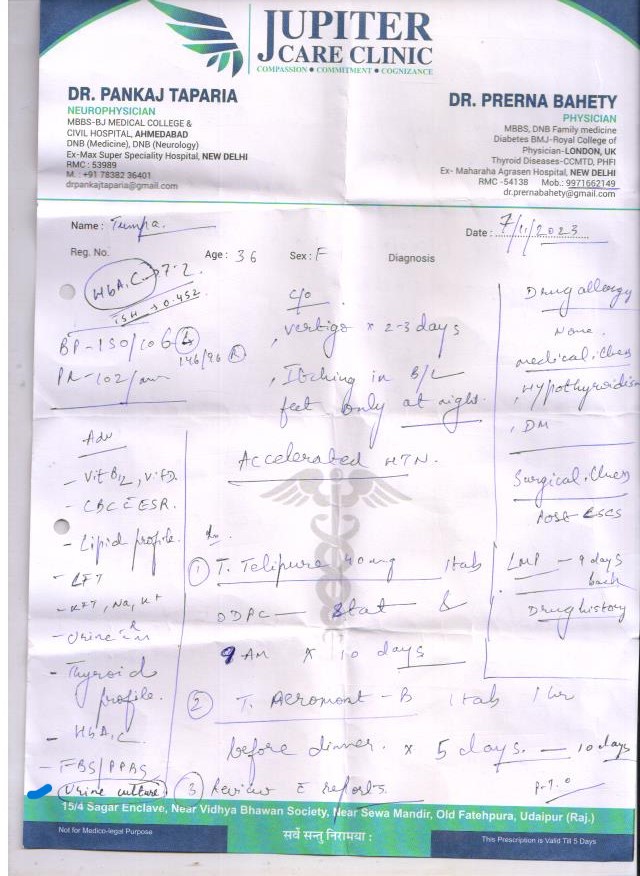 JUPITER
CARE CLINIC
COMPASSION • COMMITMENT • COGNIZANCE
DR. PANKAJ TAPARIA
NEUROPHYSICIAN
MBBS-BJ MEDICAL COLLEGE &
CIVIL HOSPITAL, AHMEDABAD
DNB (Medicine), DNB (Neurology)
Ex-Max Super Speciality Hospital, NEW DELHI
RMC : 53989
M. : +91 78382 36401
drpankajtaparia@gmail.com
DR. PRERNA BAHETY
PHYSICIAN
MBBS, DNB Family medicine
Diabetes BMJ-Royal College of
Physician-LONDON, UK
Thyroid Diseases-CCMTD, PHFI
Ex- Maharaha Agrasen Hospital, NEW DELHI
RMC -54138 Mob.: 9971662149
dr.prernabahety@gmail.com
Name : Tumpa
Date : 7/11/2023
Reg. No. Age : 36 Sex : F Diagnosis
HbA1C → 7.2
TSH → 0.452
BP - 150/106 L
146/96 R
PR - 102/min
C/o
vertigo x 2-3 days
Itching in B/L
feet only at night.
Accelerated HTN.
Drug allergy
None.
medical illness
Hypothyroidism
DM
Surgical illness
Post LSCS
LMP - 9 days
back
Drug history
Adv
- Vit B12, Vit D
- CBC c ESR.
- Lipid profile.
- LFT
- KFT, Na, K+
- Urine R/M
- Thyroid
profile.
- HbA1C
- FBS/PPBS
- Urine culture
① T. Telipure 40mg 1tab
ODPC — Stat &
9 AM x 10 days
② T. Aeromont - B 1tab 1hr
before dinner. x 5 days. — 10 days
③ Review c reports.
15/4 Sagar Enclave, Near Vidhya Bhawan Society, Near Sewa Mandir, Old Fatehpura, Udaipur (Raj.)
Not for Medico-legal Purpose
सर्वे सन्तु निरामया :
This Prescription is Valid Till 5 Days